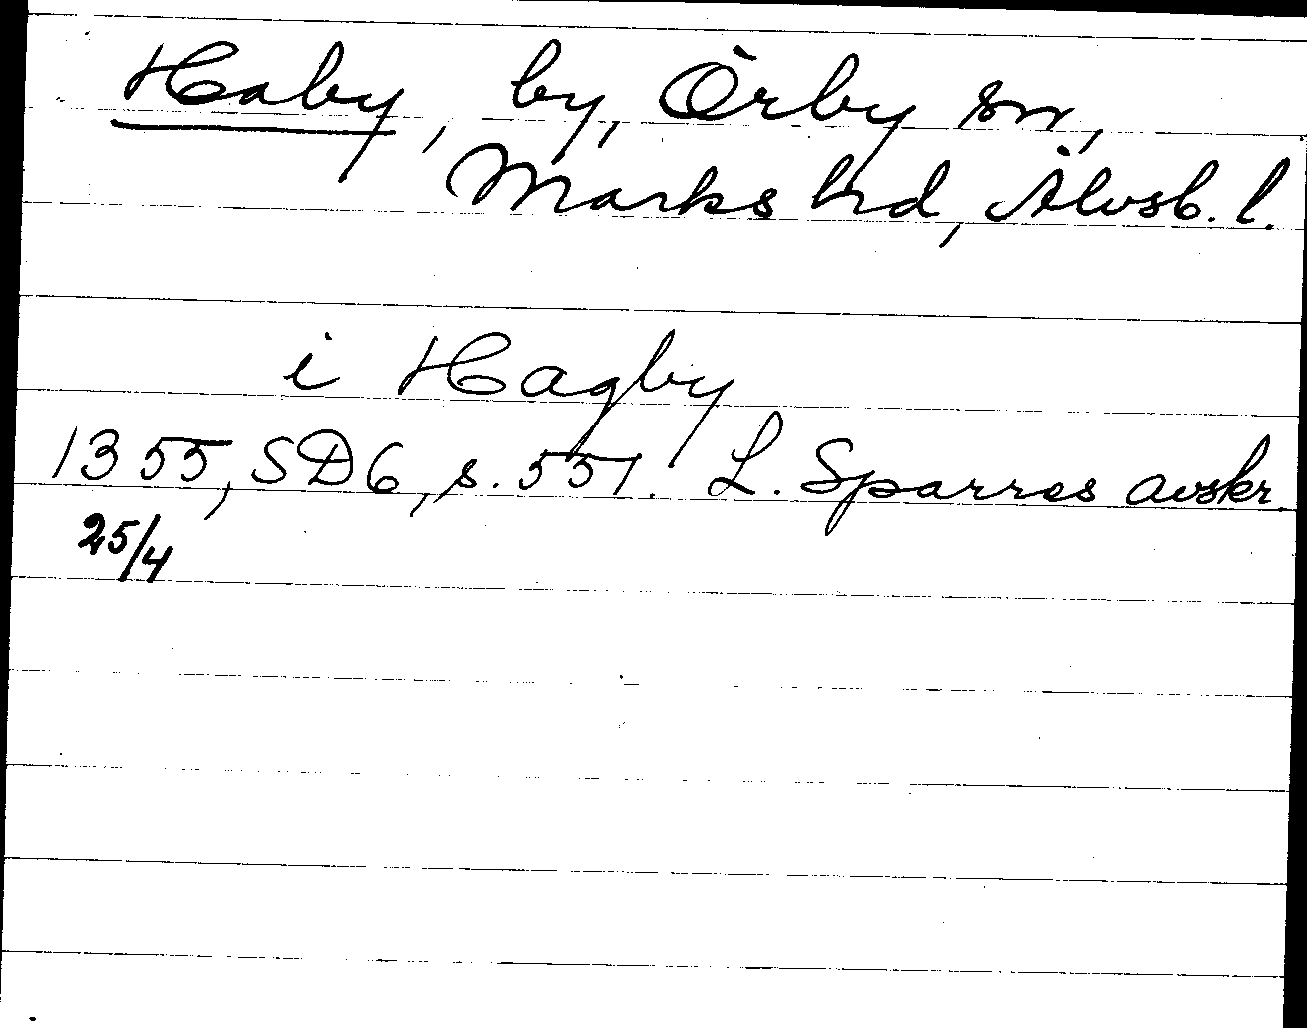 Haby, by, Örby sn,
Marks hd, Älvsb. l.
i Hagby
1355, SD6, s. 551. L. Sparres avskr.
25/4